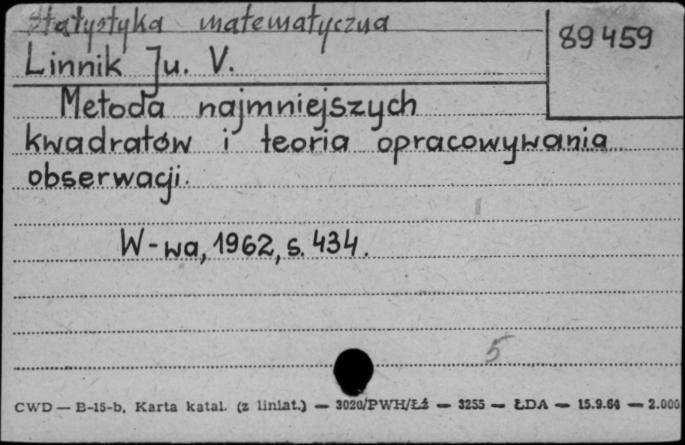 Statystyka matematyczna
89459
Linnik Ju. V.
Metoda najmniejszych
kwadratów i teoria opracowywania
obserwacji.
W-wa, 1962, s. 434.
5
CWD — B-15-b, Karta katal. (z liniat.) — 3020/PWH/ŁŹ — 3255 — ŁDA — 15.9.64 — 2.000